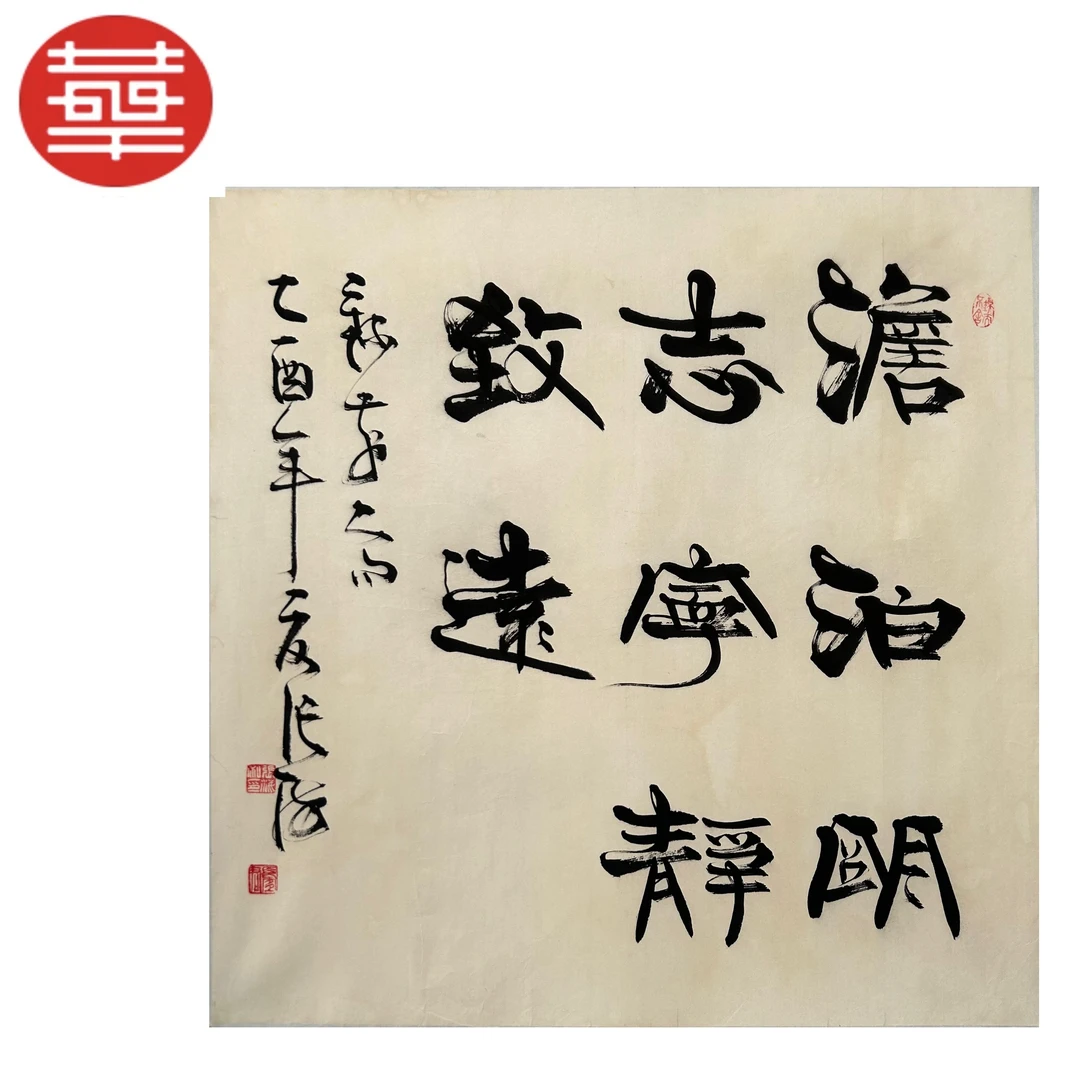 華
澹泊明
志寧靜
致遠
乙酉年夏